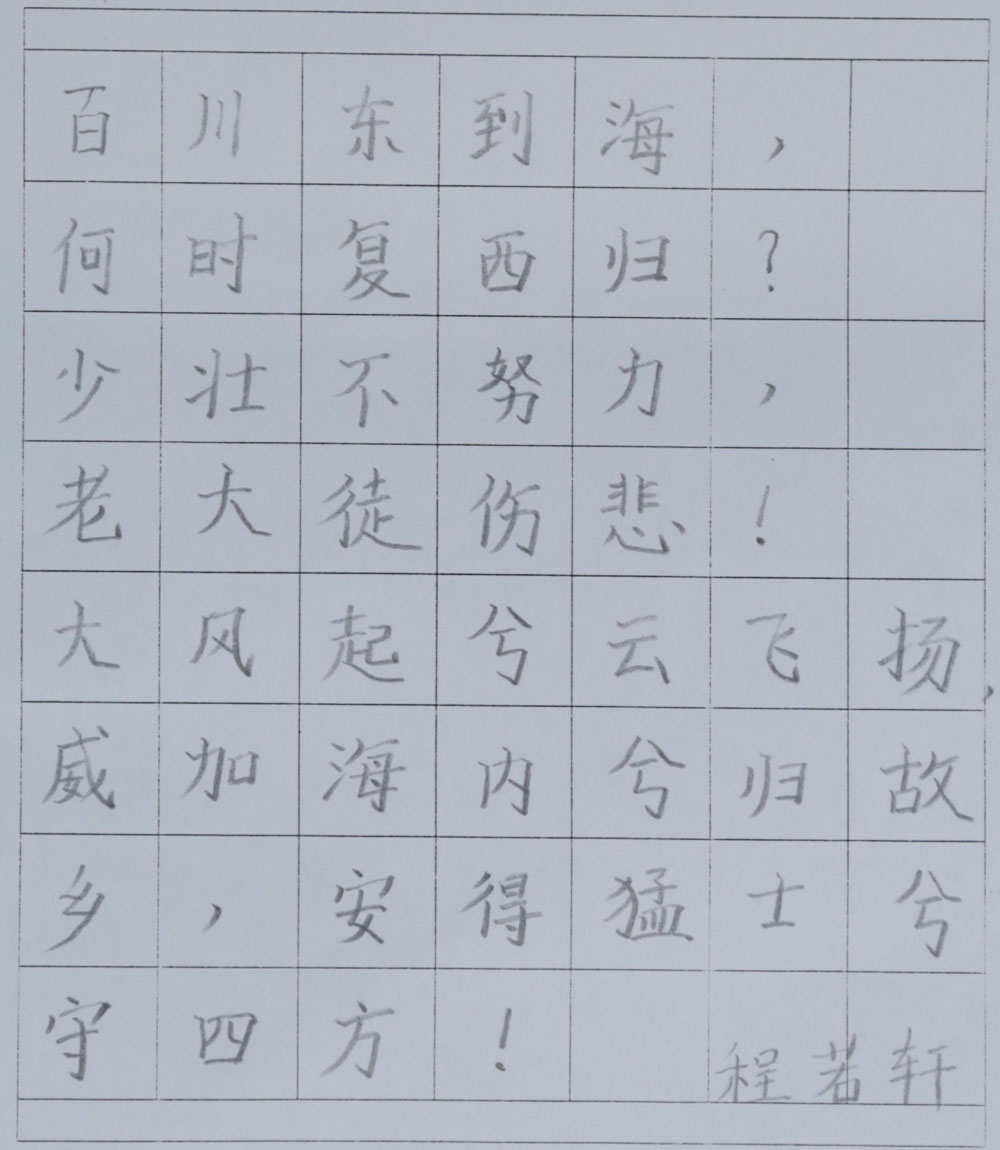 百川东到海，
何时复西归？
少壮不努力，
老大徒伤悲！
大风起兮云飞扬，
威加海内兮归故
乡，安得猛士兮
守四方！
程若轩